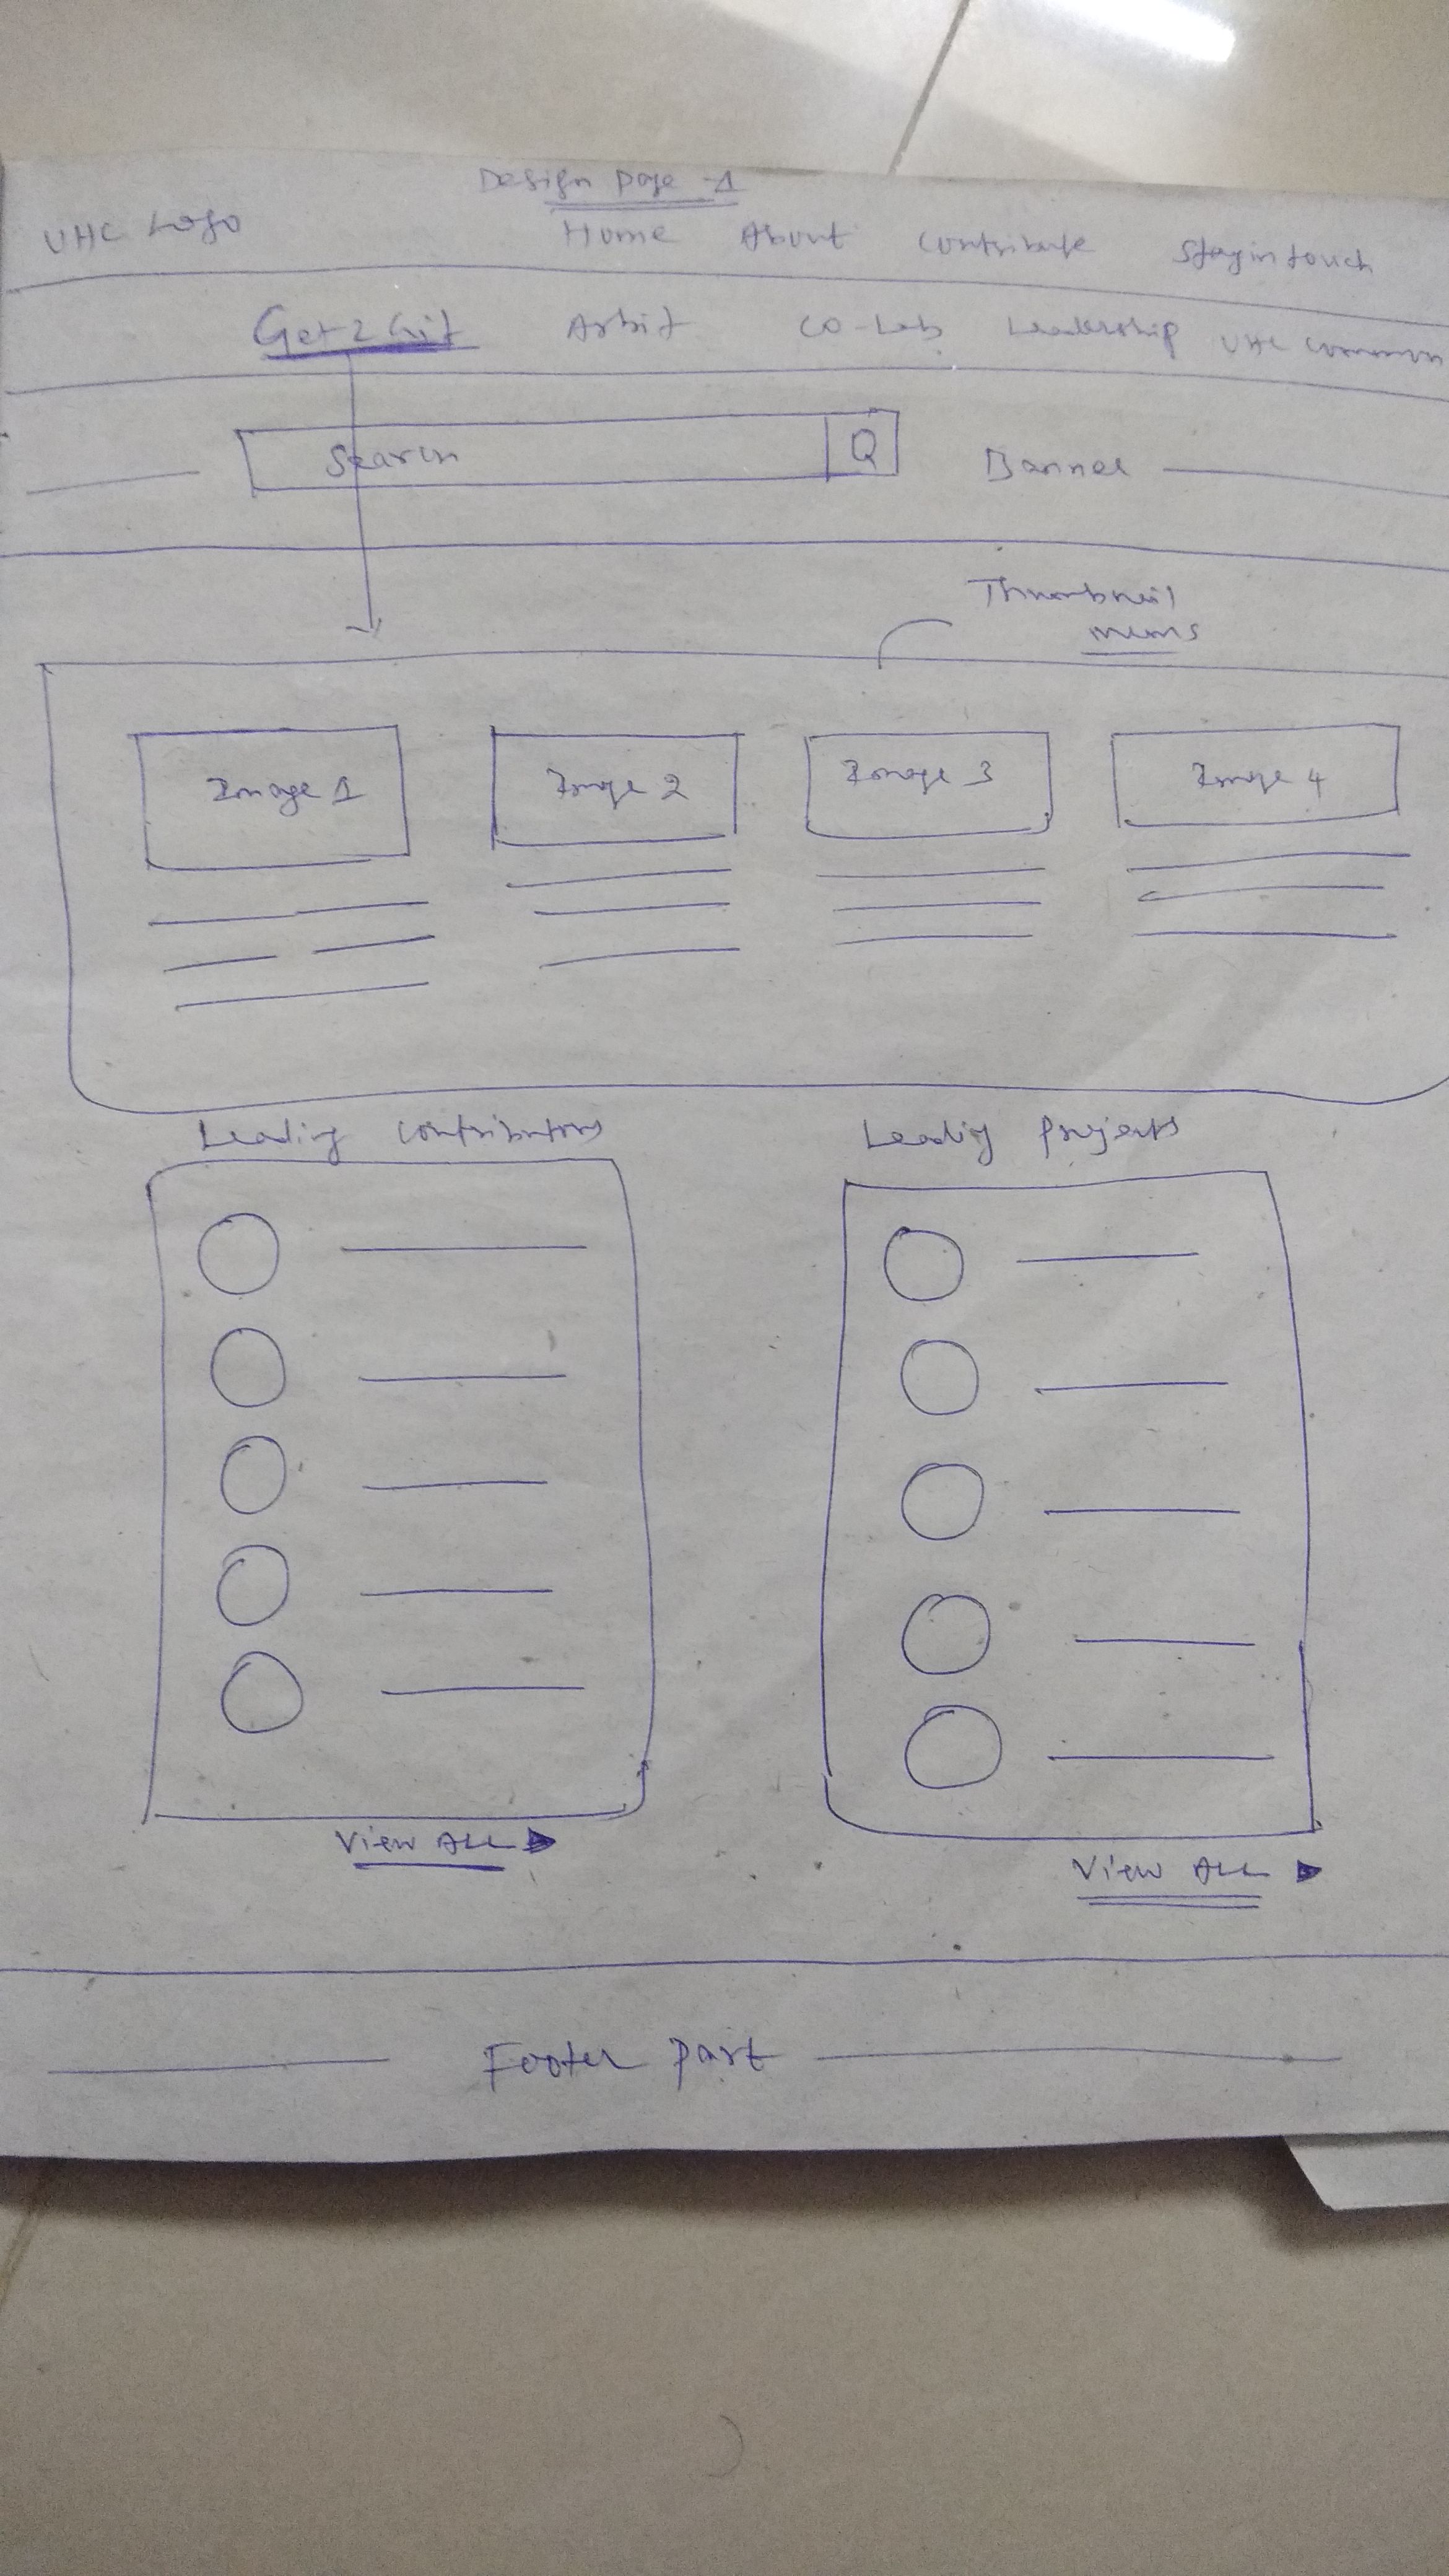 Design page -1
UHC Logo Home About Contribute Stay in touch
Get 2 Arbit CO-Lab Leadership UHC common
Search Q Banner
Thumbnail
menus
Image 1 Image 2 Image 3 Image 4
Leading contributors Leading projects
View ALL
View ALL
Footer part